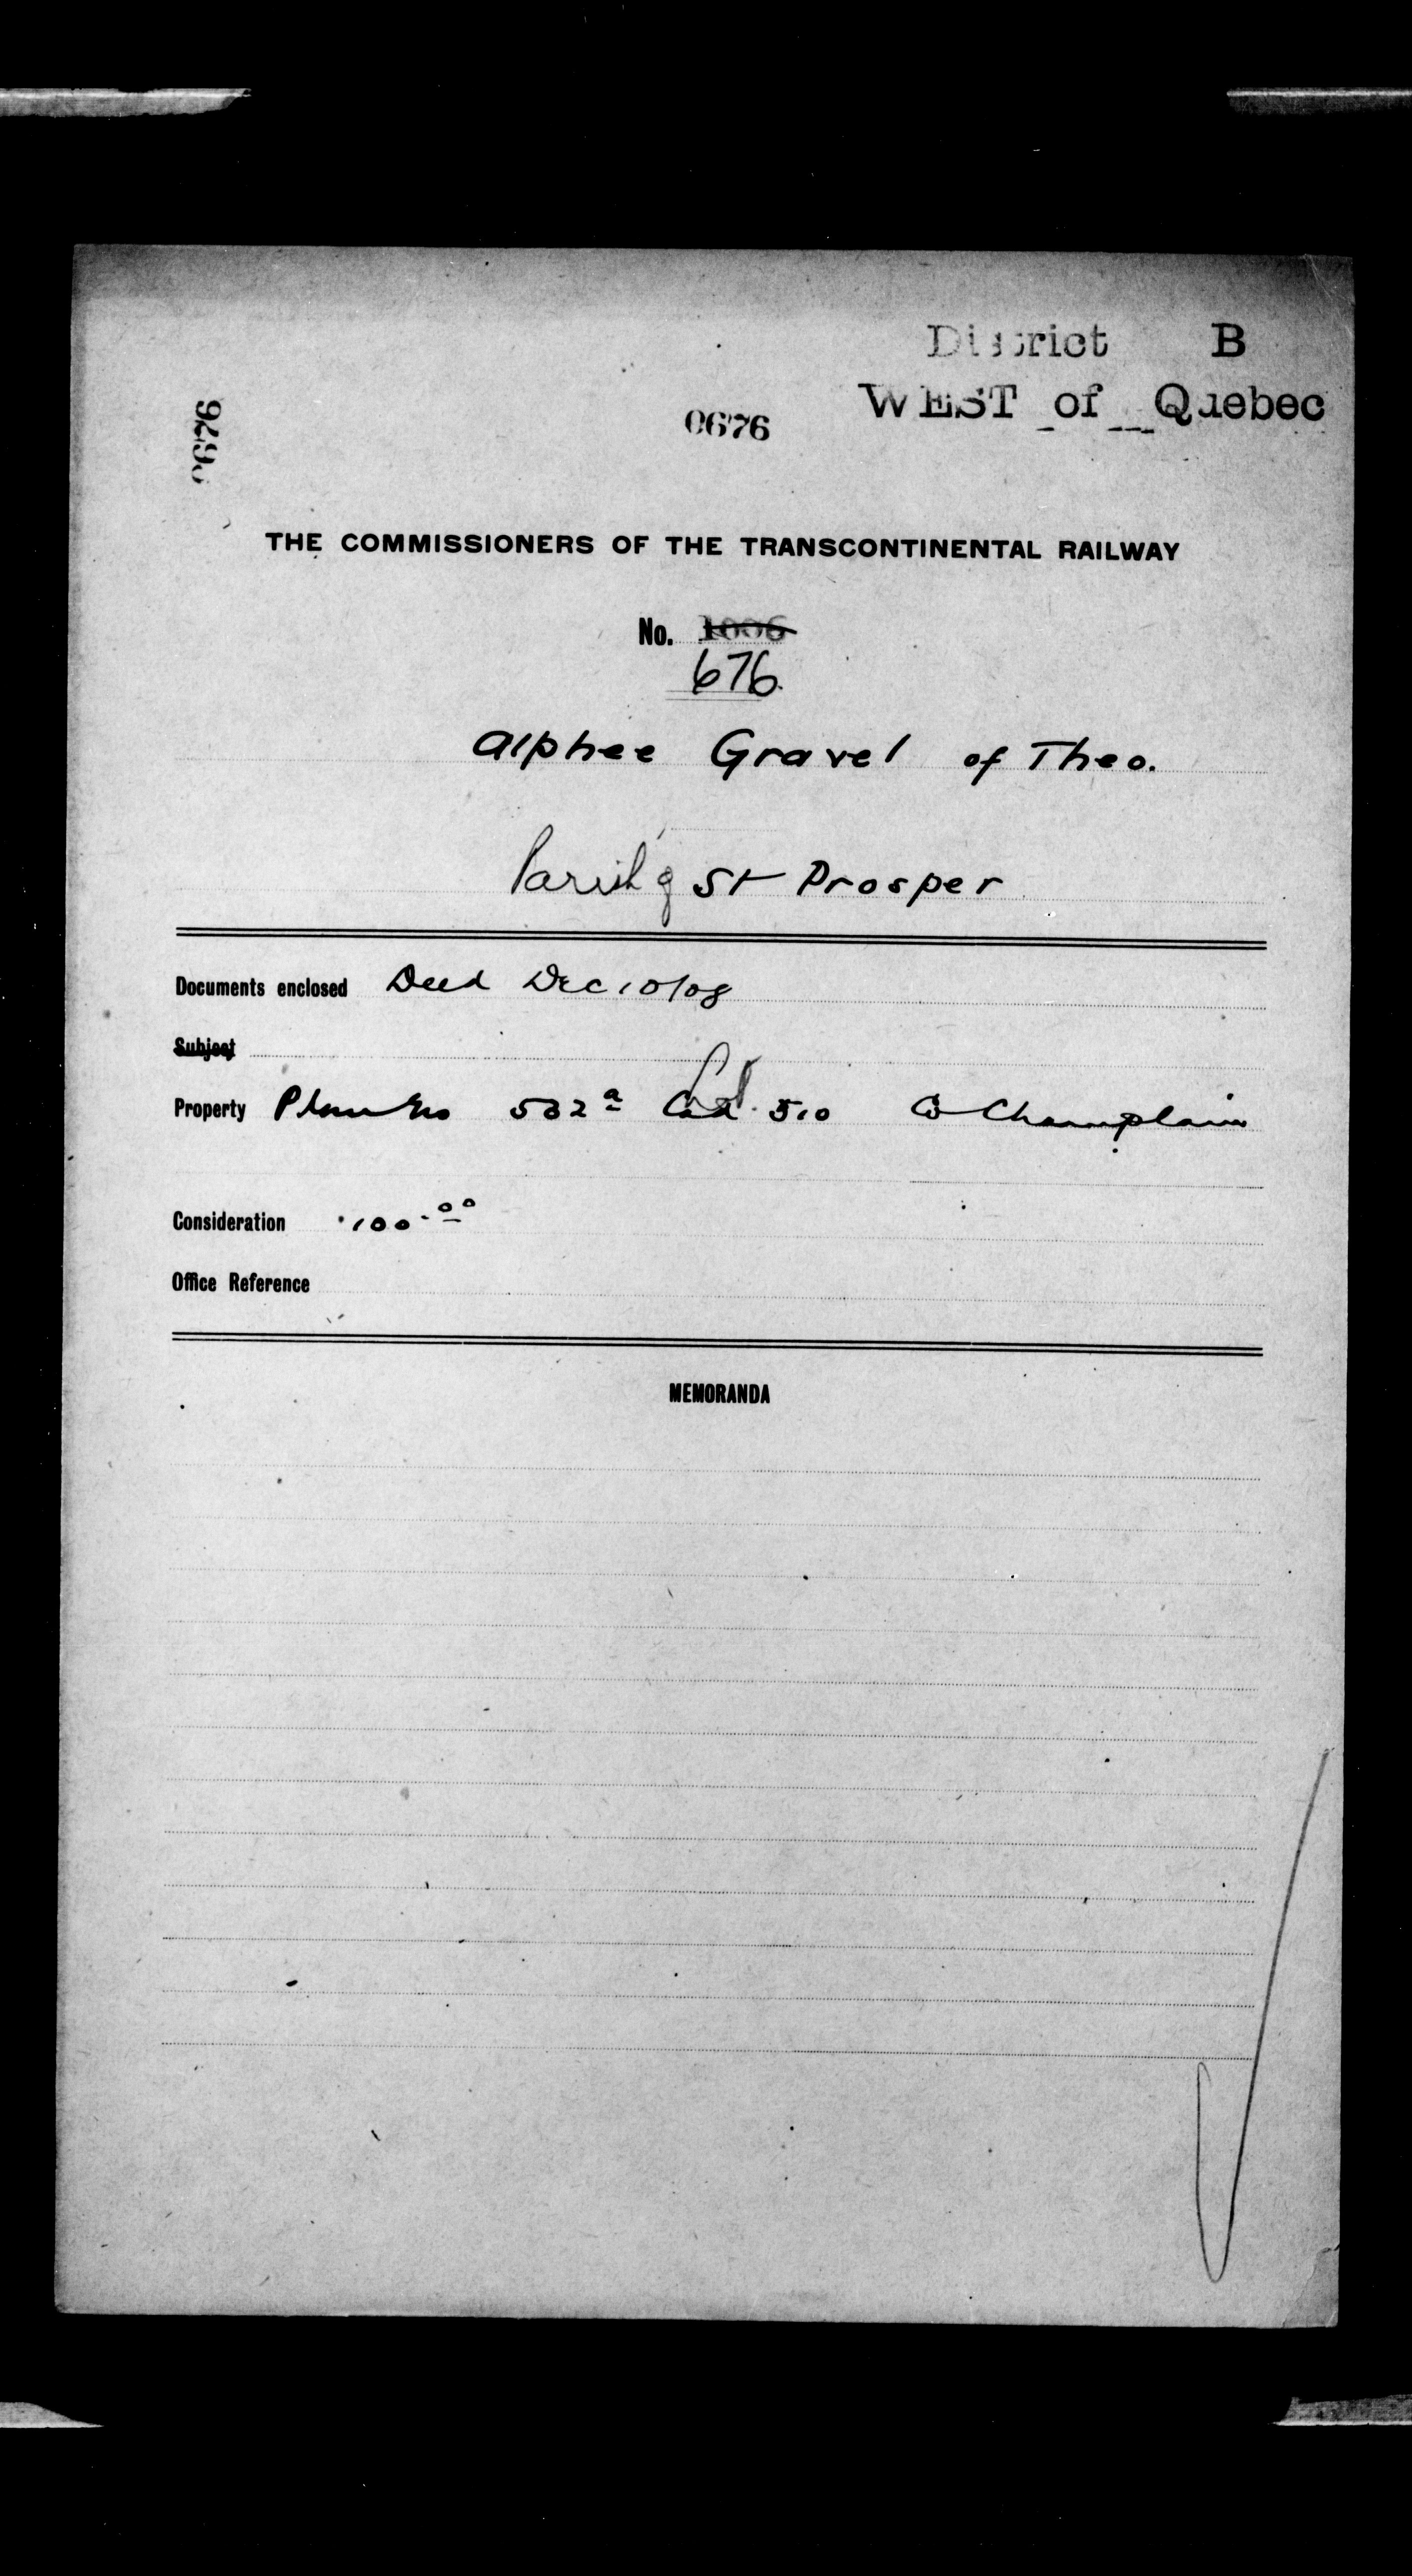 District B
WEST of Quebec
0676
0676
THE COMMISSIONERS OF THE TRANSCONTINENTAL RAILWAY
No. 1006
676
Alphee Gravel of Theo.
Parish of St Prosper
Documents enclosed Deed Dec 10/08
Subject
Property Plan No 502a Cad 510 Co Champlain
Consideration 100.00
Office Reference
MEMORANDA